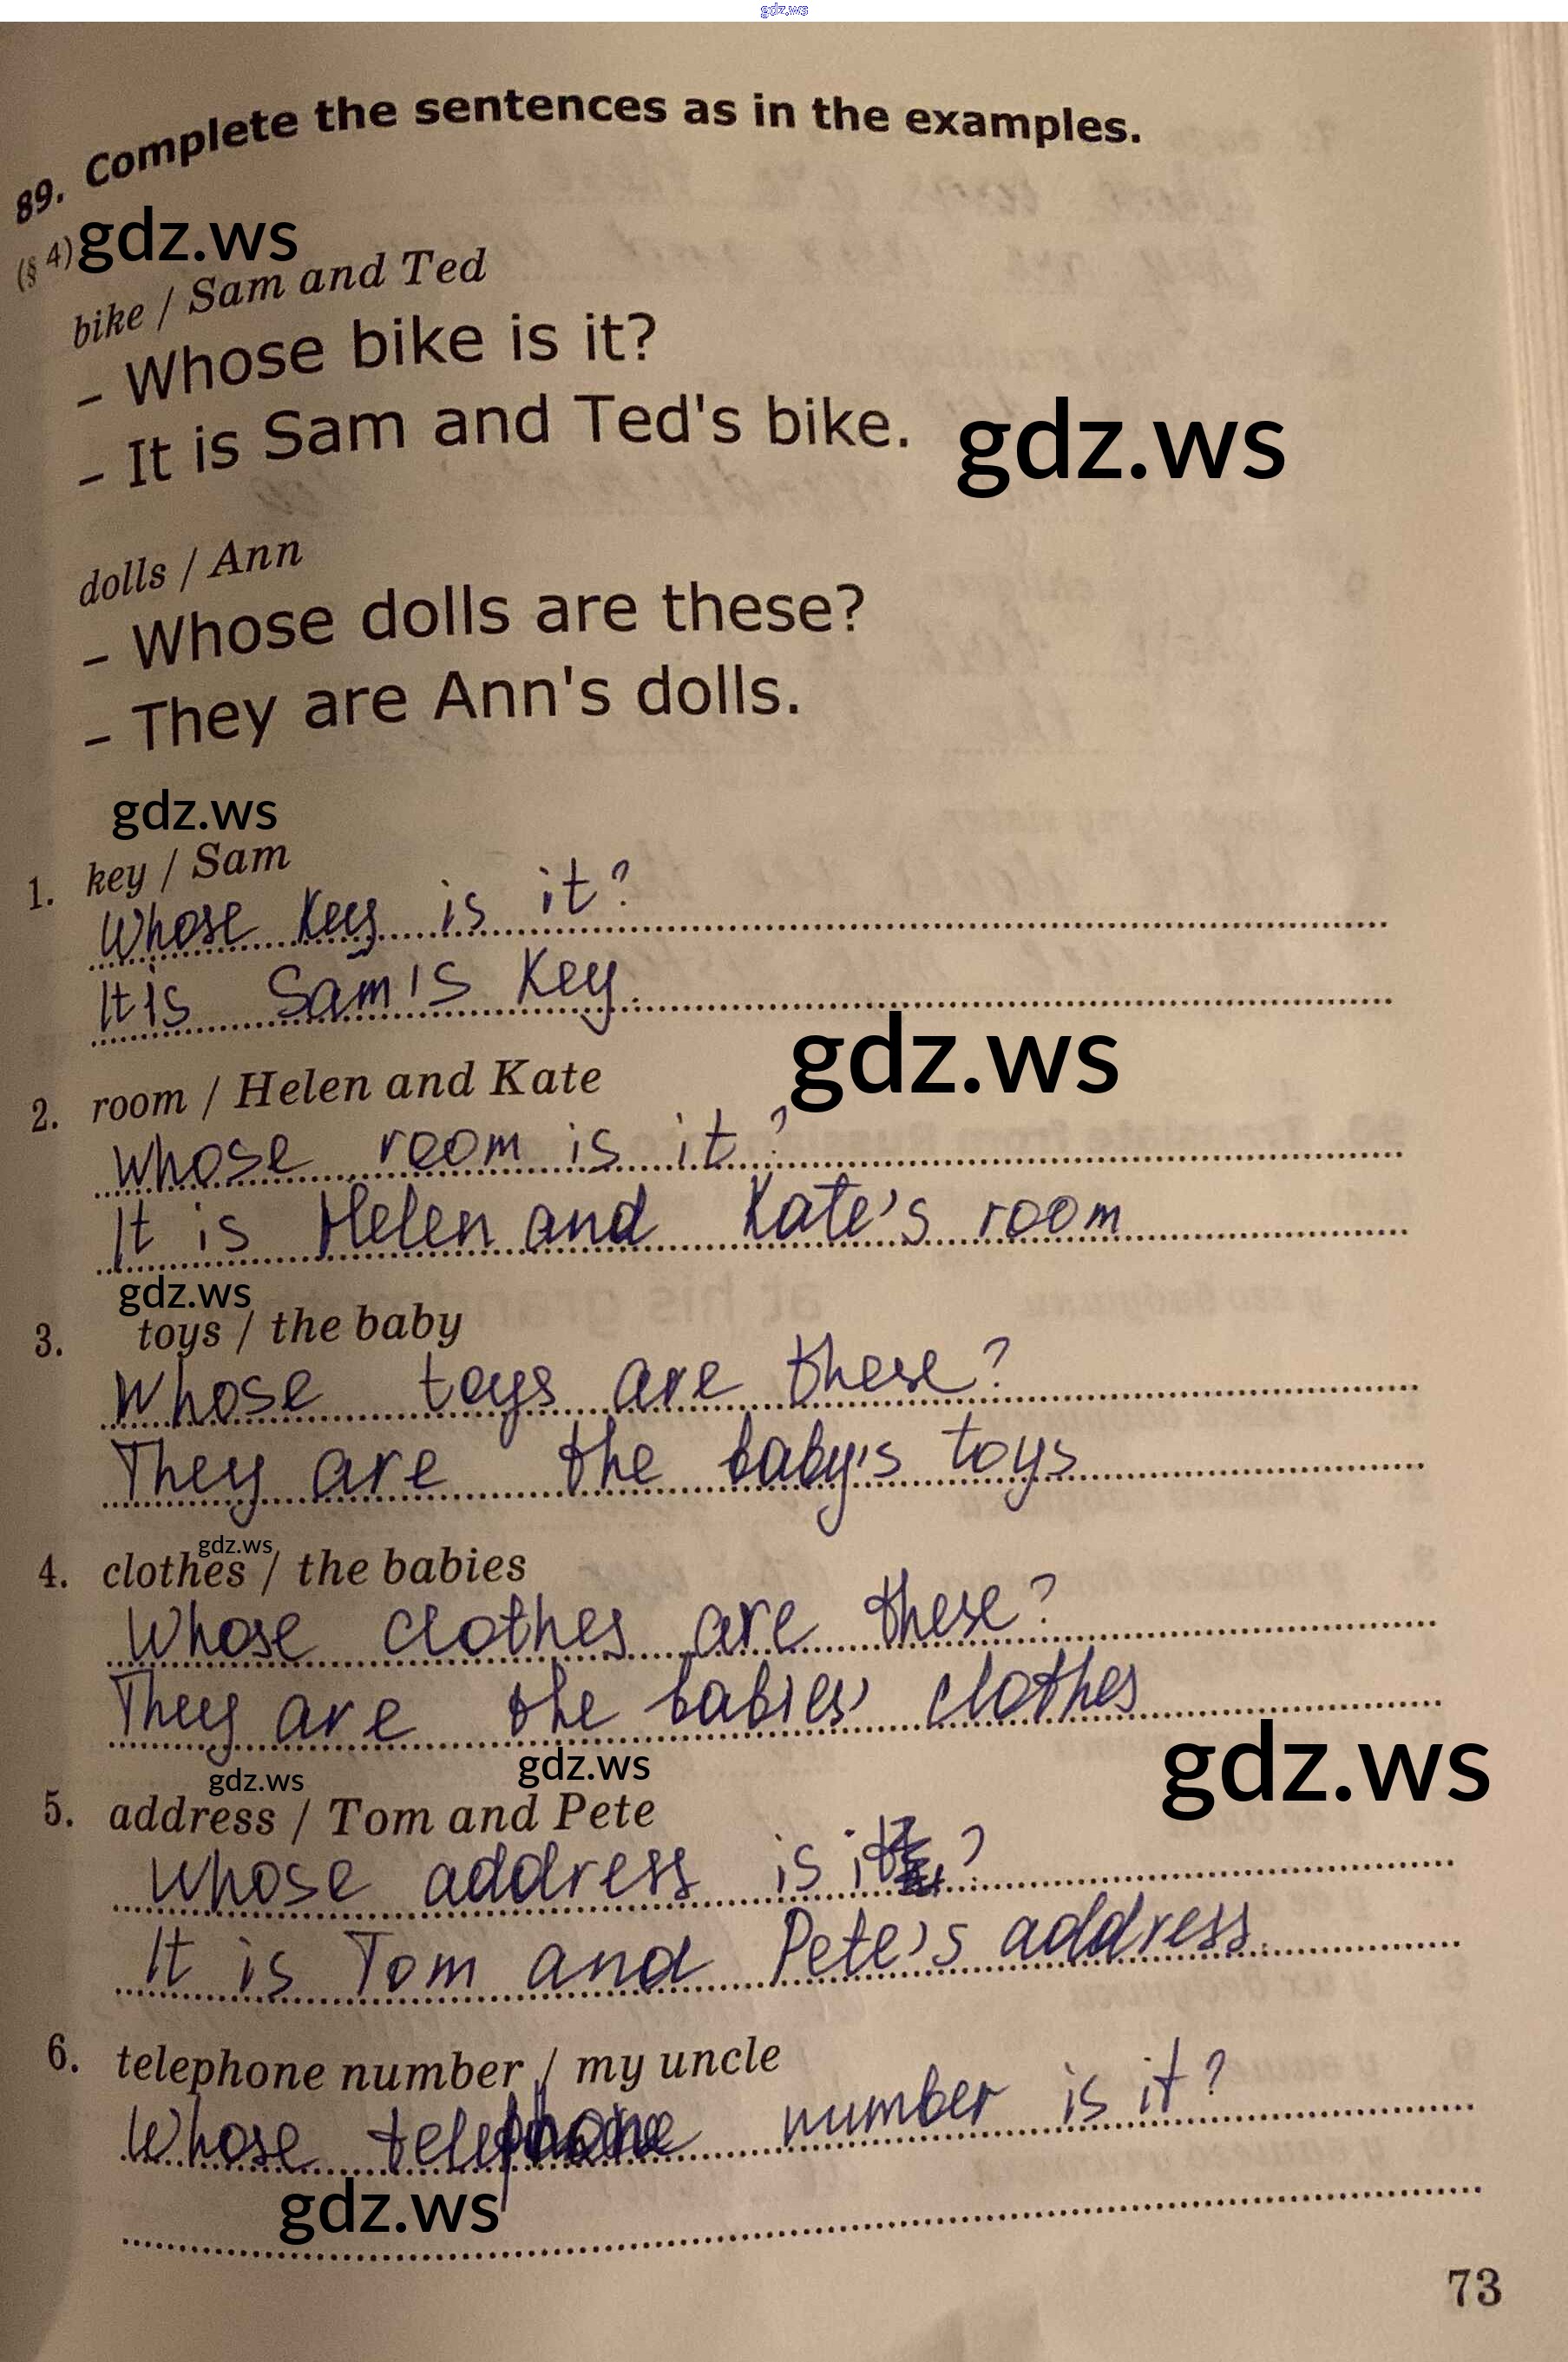 gdz.ws
89. Complete the sentences as in the examples.
(§ 4) gdz.ws
bike / Sam and Ted
– Whose bike is it?
– It is Sam and Ted's bike.
gdz.ws
dolls / Ann
– Whose dolls are these?
– They are Ann's dolls.
gdz.ws
1. key / Sam
Whose key is it?
It is Sam's key.
gdz.ws
2. room / Helen and Kate
Whose room is it?
It is Helen and Kate's room
gdz.ws
3. toys / the baby
Whose toys are these?
They are the baby's toys
gdz.ws
4. clothes / the babies
Whose clothes are these?
They are the babies' clothes
gdz.ws
gdz.ws
gdz.ws
5. address / Tom and Pete
Whose address is it?
It is Tom and Pete's address.
6. telephone number / my uncle
Whose telephone number is it?
gdz.ws
73